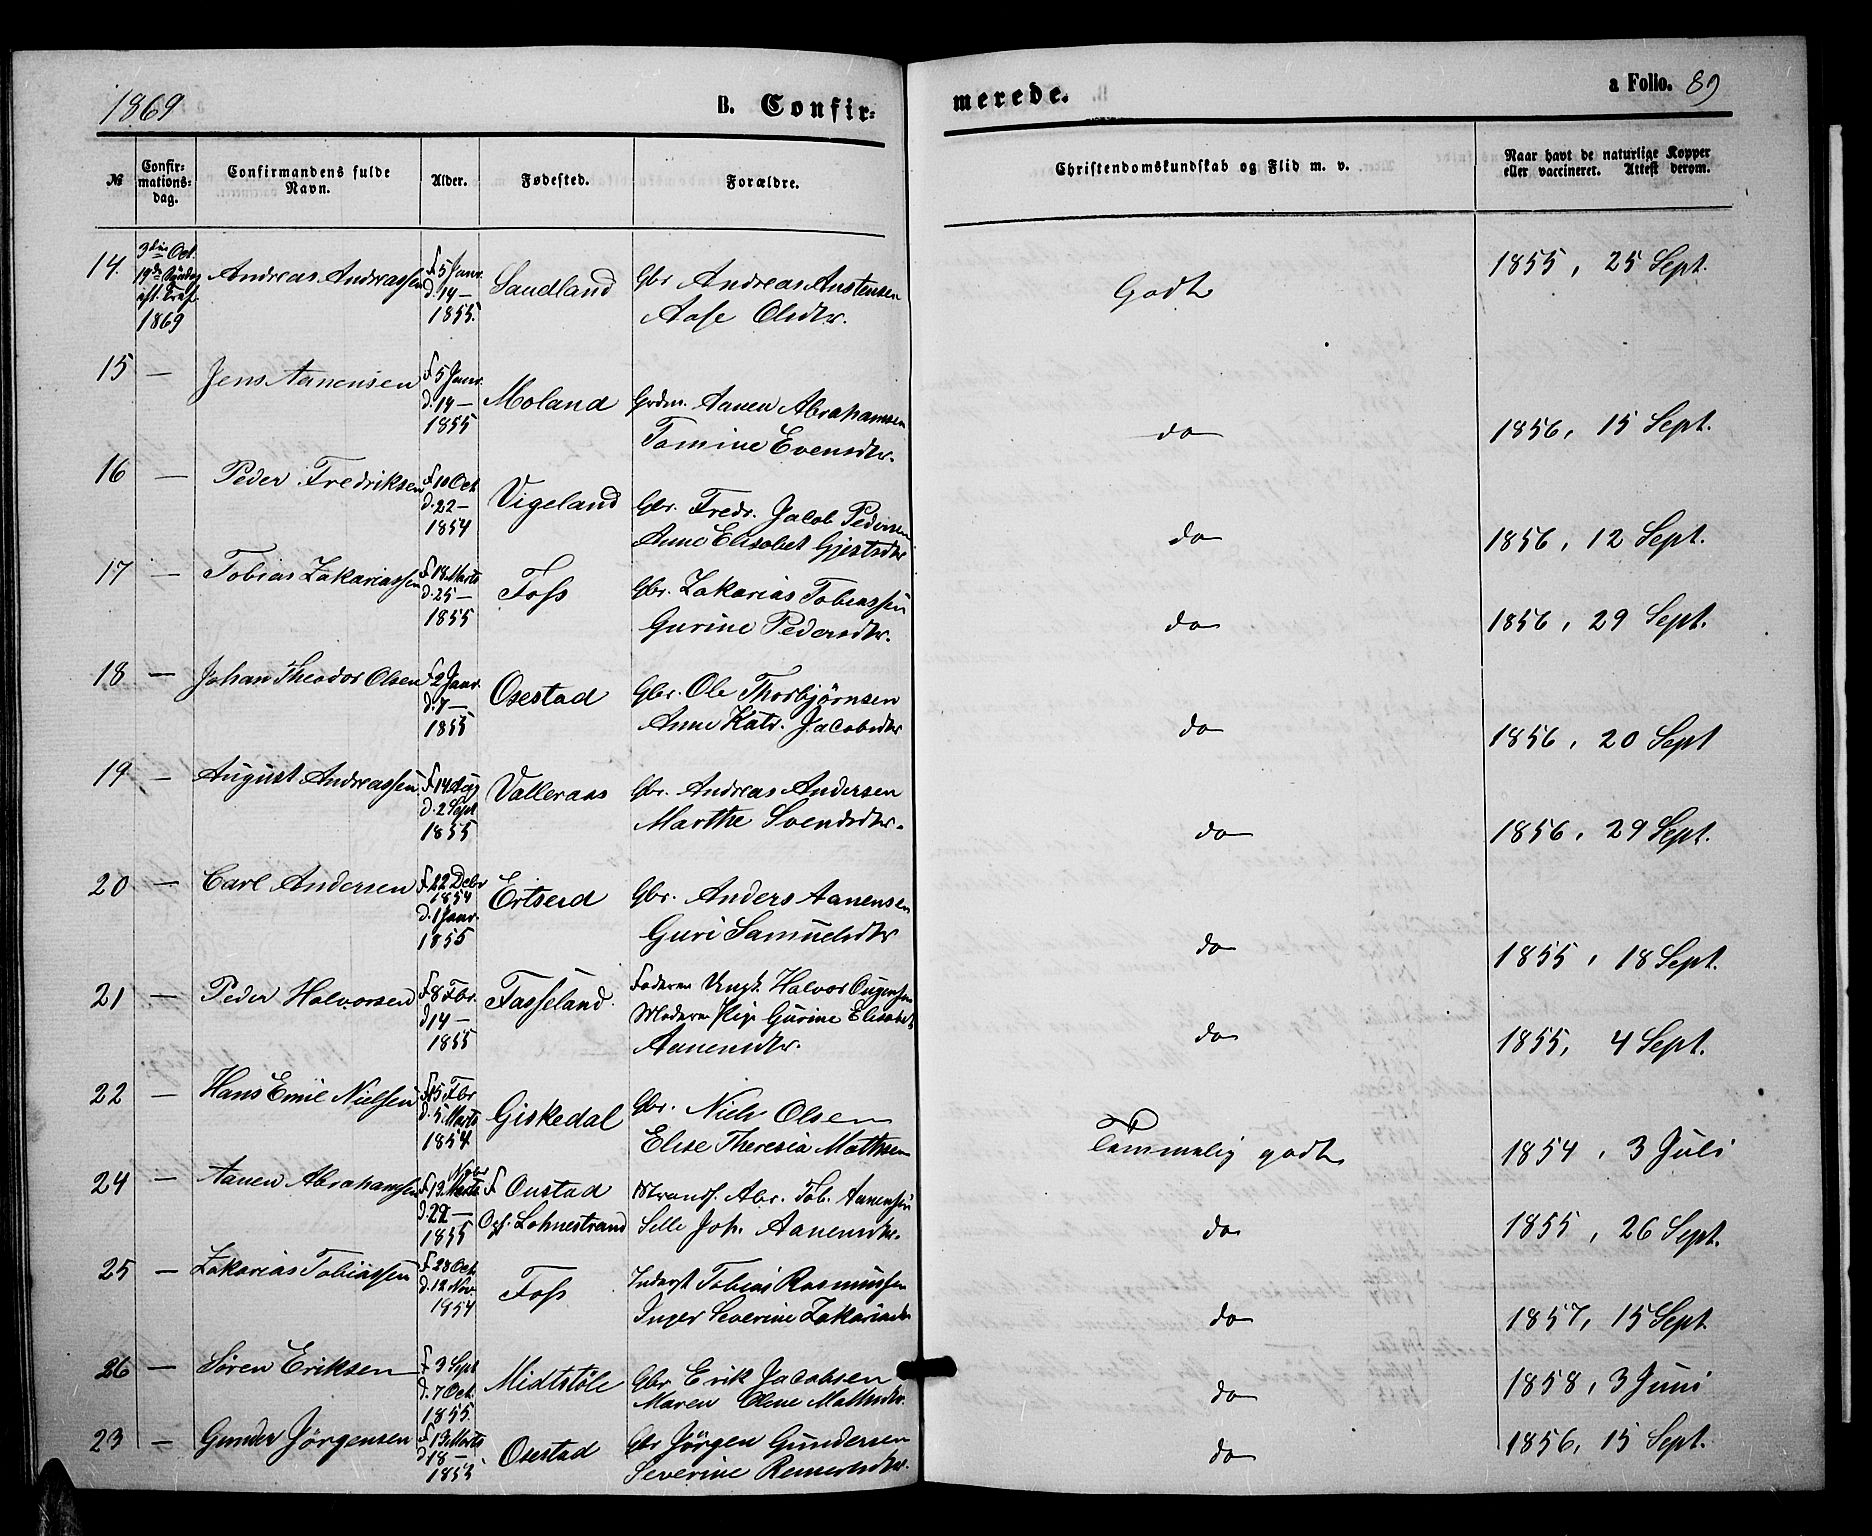 1869
B. Confir-
merede.
a Folio. 89
№
Confir-
mations-
dag.
Confirmandens fulde
Navn.
Alder.
Fødested.
Forældre.
Christendomskundskab og Flid m. v.
Naar havt de naturlige Kopper
eller vaccineret. Attest derom.
14. 3die Oct. 19de Søndag eft. Tref. 1869 Andreas Andreassen f 5 Janr. d. 14 — 1855. Sandland Gbr Andreas Austensen
Aase Olsdtr.
Godt
1855, 25 Sept.
15 — Jens Aanensen f 5 Janr. d. 14 — 1855 Moland Grdm. Aanen Abrahamsen
Tomine Evensdtr.
do
1856, 15 Sept.
16 — Peder Fredriksen f 10 Oct d. 22 — 1854 Vigeland Gbr. Fredr. Jacob Pedersen
Anne Elisabet Gjertsdtr
do
1856, 12 Sept.
17 — Tobias Zakariassen f 18 Marts d. 25 — 1855 Foss Gbr. Zakarias Tobiassen
Gurine Pedersdtr.
do
1856, 29 Sept.
18 — Johan Theodor Olsen f 2 Janr. d. 7 — 1855 Osestad Gbr. Ole Thorbjørnsen
Anne Katr. Jacobsdtr
do
1856, 20 Sept
19 — August Andreassen f 14 Aug d. 2 Sept 1855 Valleraas Gbr. Andreas Andersen
Marthe Svendsdtr.
do
1856, 29 Sept.
20 — Carl Andersen f 22 Debr 1854 d. 1 Janr. 1855 Ertseid Gbr. Anders Aanensen
Guri Samuelsdtr
do
1855, 18 Sept.
21 — Peder Halvorsen f 8 Fbr. d 14 — 1855 Tasseland. Faderen Ungk. Halvor
Moderen Pige Gurine Elisabet
Aanensdtr.
do
1855, 4 Sept.
22 — Hans Emil Nielsen f 15 Fbr d. 5 Marts 1854. Giskedal Gbr. Niels Olsen
Elise Theresia Mathsen
Temmelig godt
1854, 3 Juli
24 — Aanen Abrahamsen f 13 Novbr d. 22 — 1855 f Oustad
Opf. Lohnestrand Strandf. Abr. Tob. Aanensen
Selle Joh. Aanensdtr.
do
1855, 26 Sept.
25 — Zakarias Tobiassen f 23 Oct. d. 12 Nov 1854 Foss Inderst Tobias Rasmussen
Inger Severine Zakariasdtr
do
1857, 15 Sept
26 — Søren Eriksen f 3 Sept d. 7 Oct. 1855. Midtstøle Gbr Erik Jacobsen
Maren Olene Mathsdtr.
do
1858, 3 Juni
23 — Gunder Jørgensen f 13 Marts d 18 — 1855 Osestad Gbr Jørgen Gundersen
Severine Reinertsdtr.
do
1856, 15 Sept.